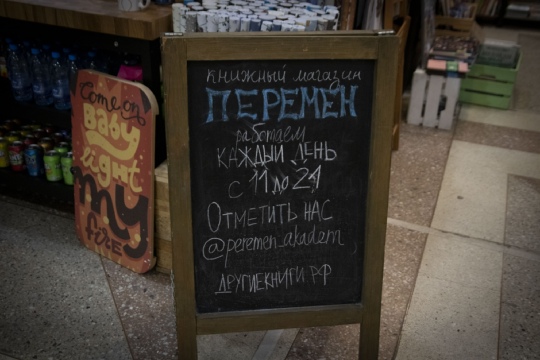 Come on
Baby
light
my
fire
книжный магазин
ПЕРЕМЕН
работаем
КАЖДЫЙ ДЕНЬ
с 11 до 21
ОТМЕТИТЬ НАС
@peremen_akadem
ДРУГИЕКНИГИ.РФ